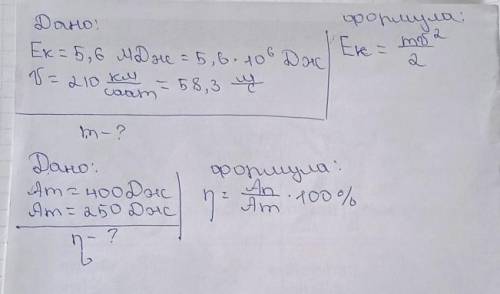 Дано:
Eк = 5,6 МДж = 5,6 · 10⁶ Дж
υ = 210 км/саат = 58,3 м/с
m - ?
формула:
Eк = mυ²/2
Дано:
Aт = 400 Дж
Aт = 250 Дж
η - ?
формула:
η = Aп/Aт · 100 %